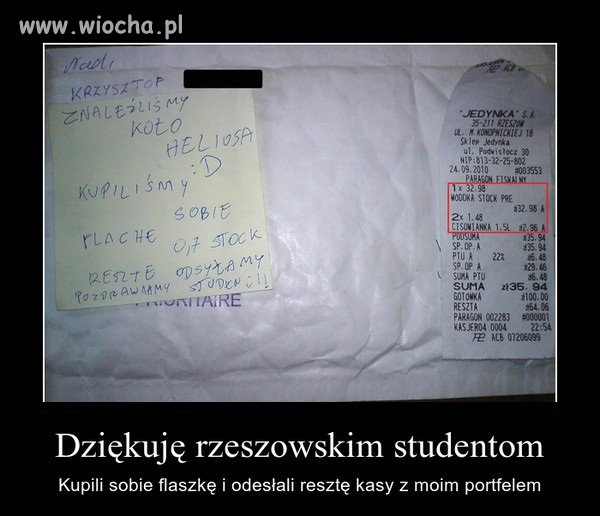 www.wiocha.pl
Nad:
KRZYSZTOF
ZNALEŹLIŚMY
KOŁO
HELIOSA
:D
KUPILIŚMY
SOBIE
FLACHE 0,7 STOCK
RESZTE ODSYŁAMY
POZDRAWIAMY STUDENCI!!
PRIORITAIRE
"JEDYNKA" S.A.
35-211 RZESZÓW
UL. M.KONOPNICKIEJ 18
Sklep Jedynka
ul. Podwisłocz 30
NIP:813-32-25-802
24.09.2010 #003553
PARAGON FISKALNY
1 x 32.98
WÓDKA STOCK PRE
zł32.98 A
2x 1.48
CISOWIANKA 1.5L zł2.96 A
PODSUMA zł35.94
SP.OP.A zł35.94
PTU A 22% zł6.48
SP.OP A zł29.46
SUMA PTU zł6.48
SUMA zł35.94
GOTÓWKA zł100.00
RESZTA zł64.06
PARAGON 002283 #000001
KASJER04 0004 22:54
ACB 07206099
Dziękuję rzeszowskim studentom
Kupili sobie flaszkę i odesłali resztę kasy z moim portfelem